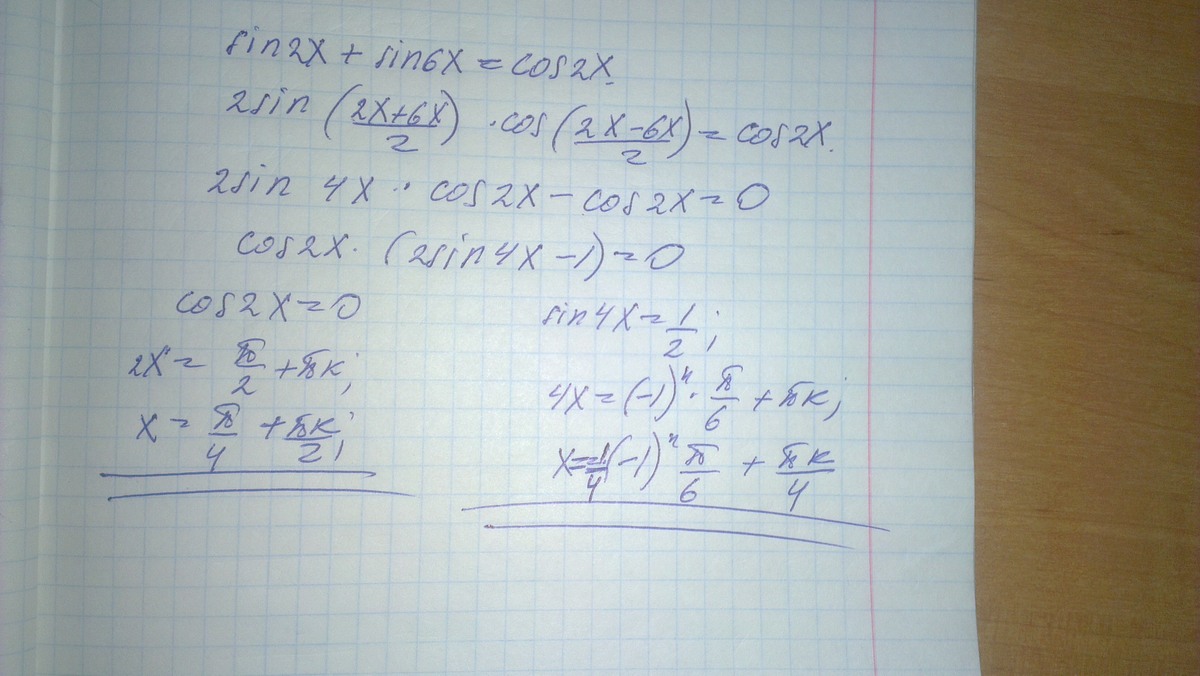 sin2x + sin6x = cos2x.
2sin (2x+6x)/2 · cos (2x-6x)/2 = cos2x.
2sin 4x · cos2x - cos2x = 0
cos2x · (2sin4x - 1) = 0
cos2x = 0
2x = π/2 + πк;
x = π/4 + πк/2;
sin4x = 1/2;
4x = (-1)ⁿ · π/6 + πк;
x = 1/4 (-1)ⁿ π/6 + πк/4